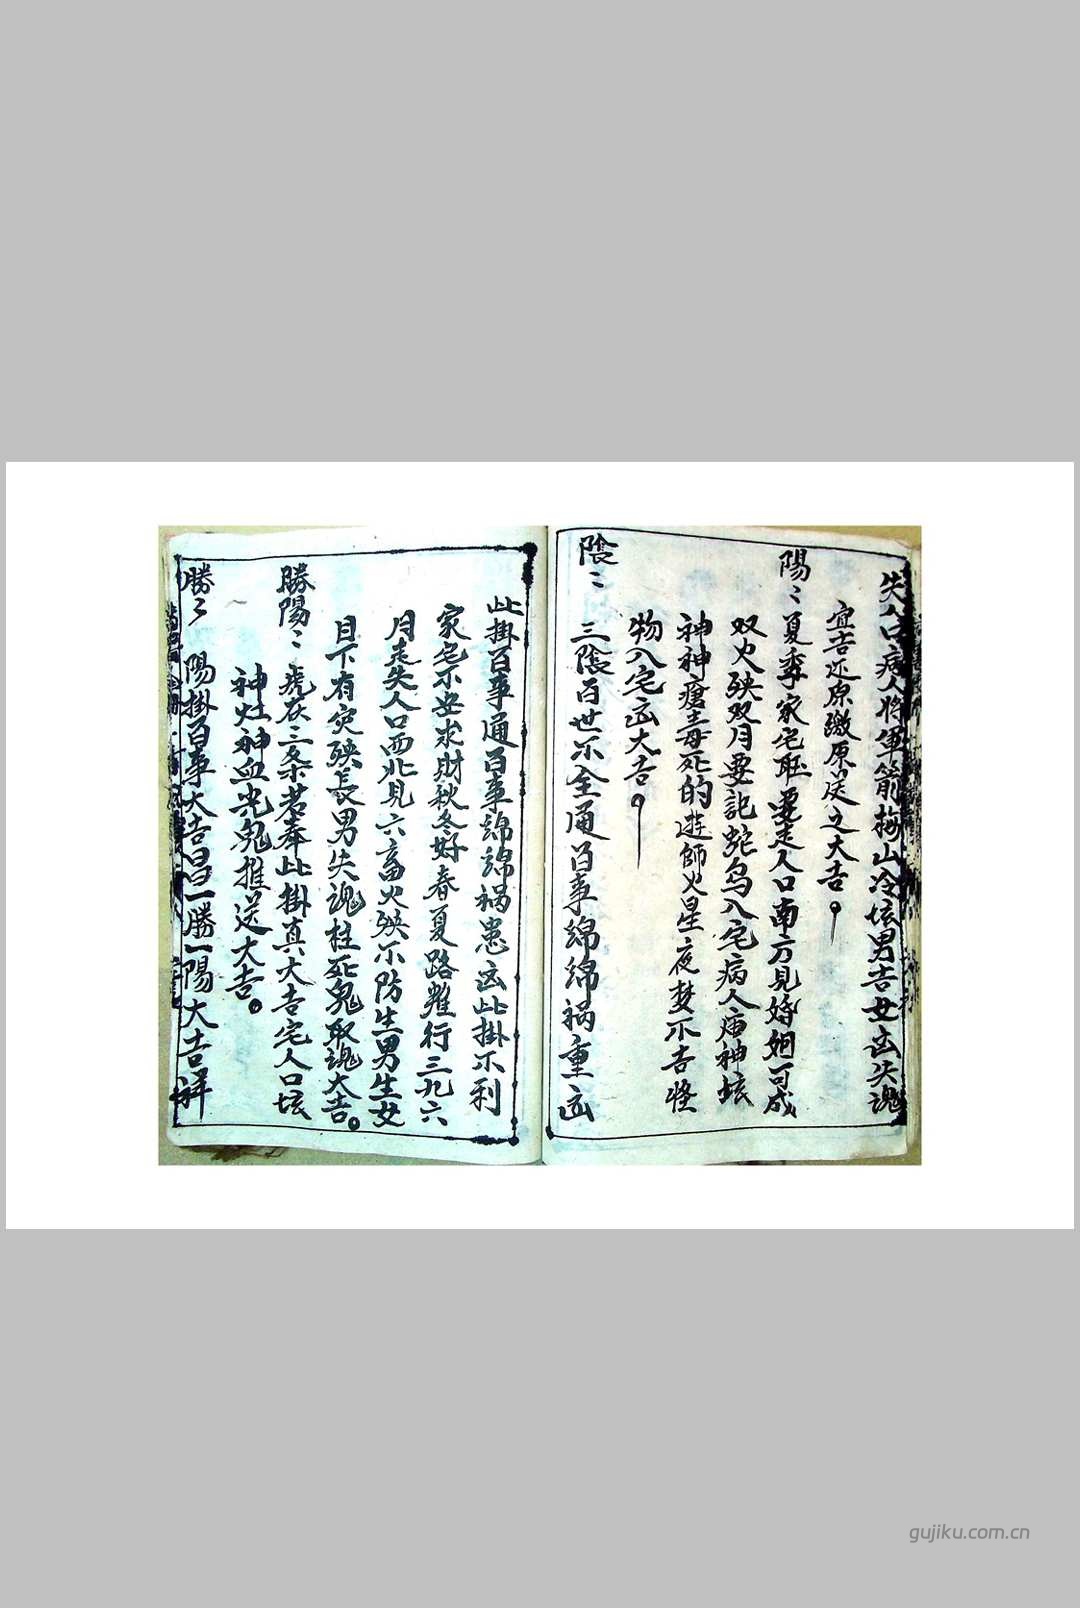 失人口病人將軍箭梅山冷垓男吉女凶失魂
宜吉还原繳原送之大吉
陽〻夏季家宅耻要走人口南方見婚姻可成
双火殃双月要記蛇鸟入宅病人庙神垓
神神瘡毒死的遊師火星夜梦不吉怪
物入宅凶大吉
陰〻三陰百世不全通百事綿綿禍重凶
此掛百事通百事綿綿禍患凶此掛不利
家宅不安求財秋冬好春夏路難行三九六
月走失人口西北見六畜火殃不防生男生女
目下有災殃長男失魂枉死鬼取魂大吉
勝陽〻虎在三条若奉此掛真大吉宅人口垓
神灶神血光鬼推送大吉
勝〻陽掛百事大吉昌一勝一陽大吉祥
gujiku.com.cn